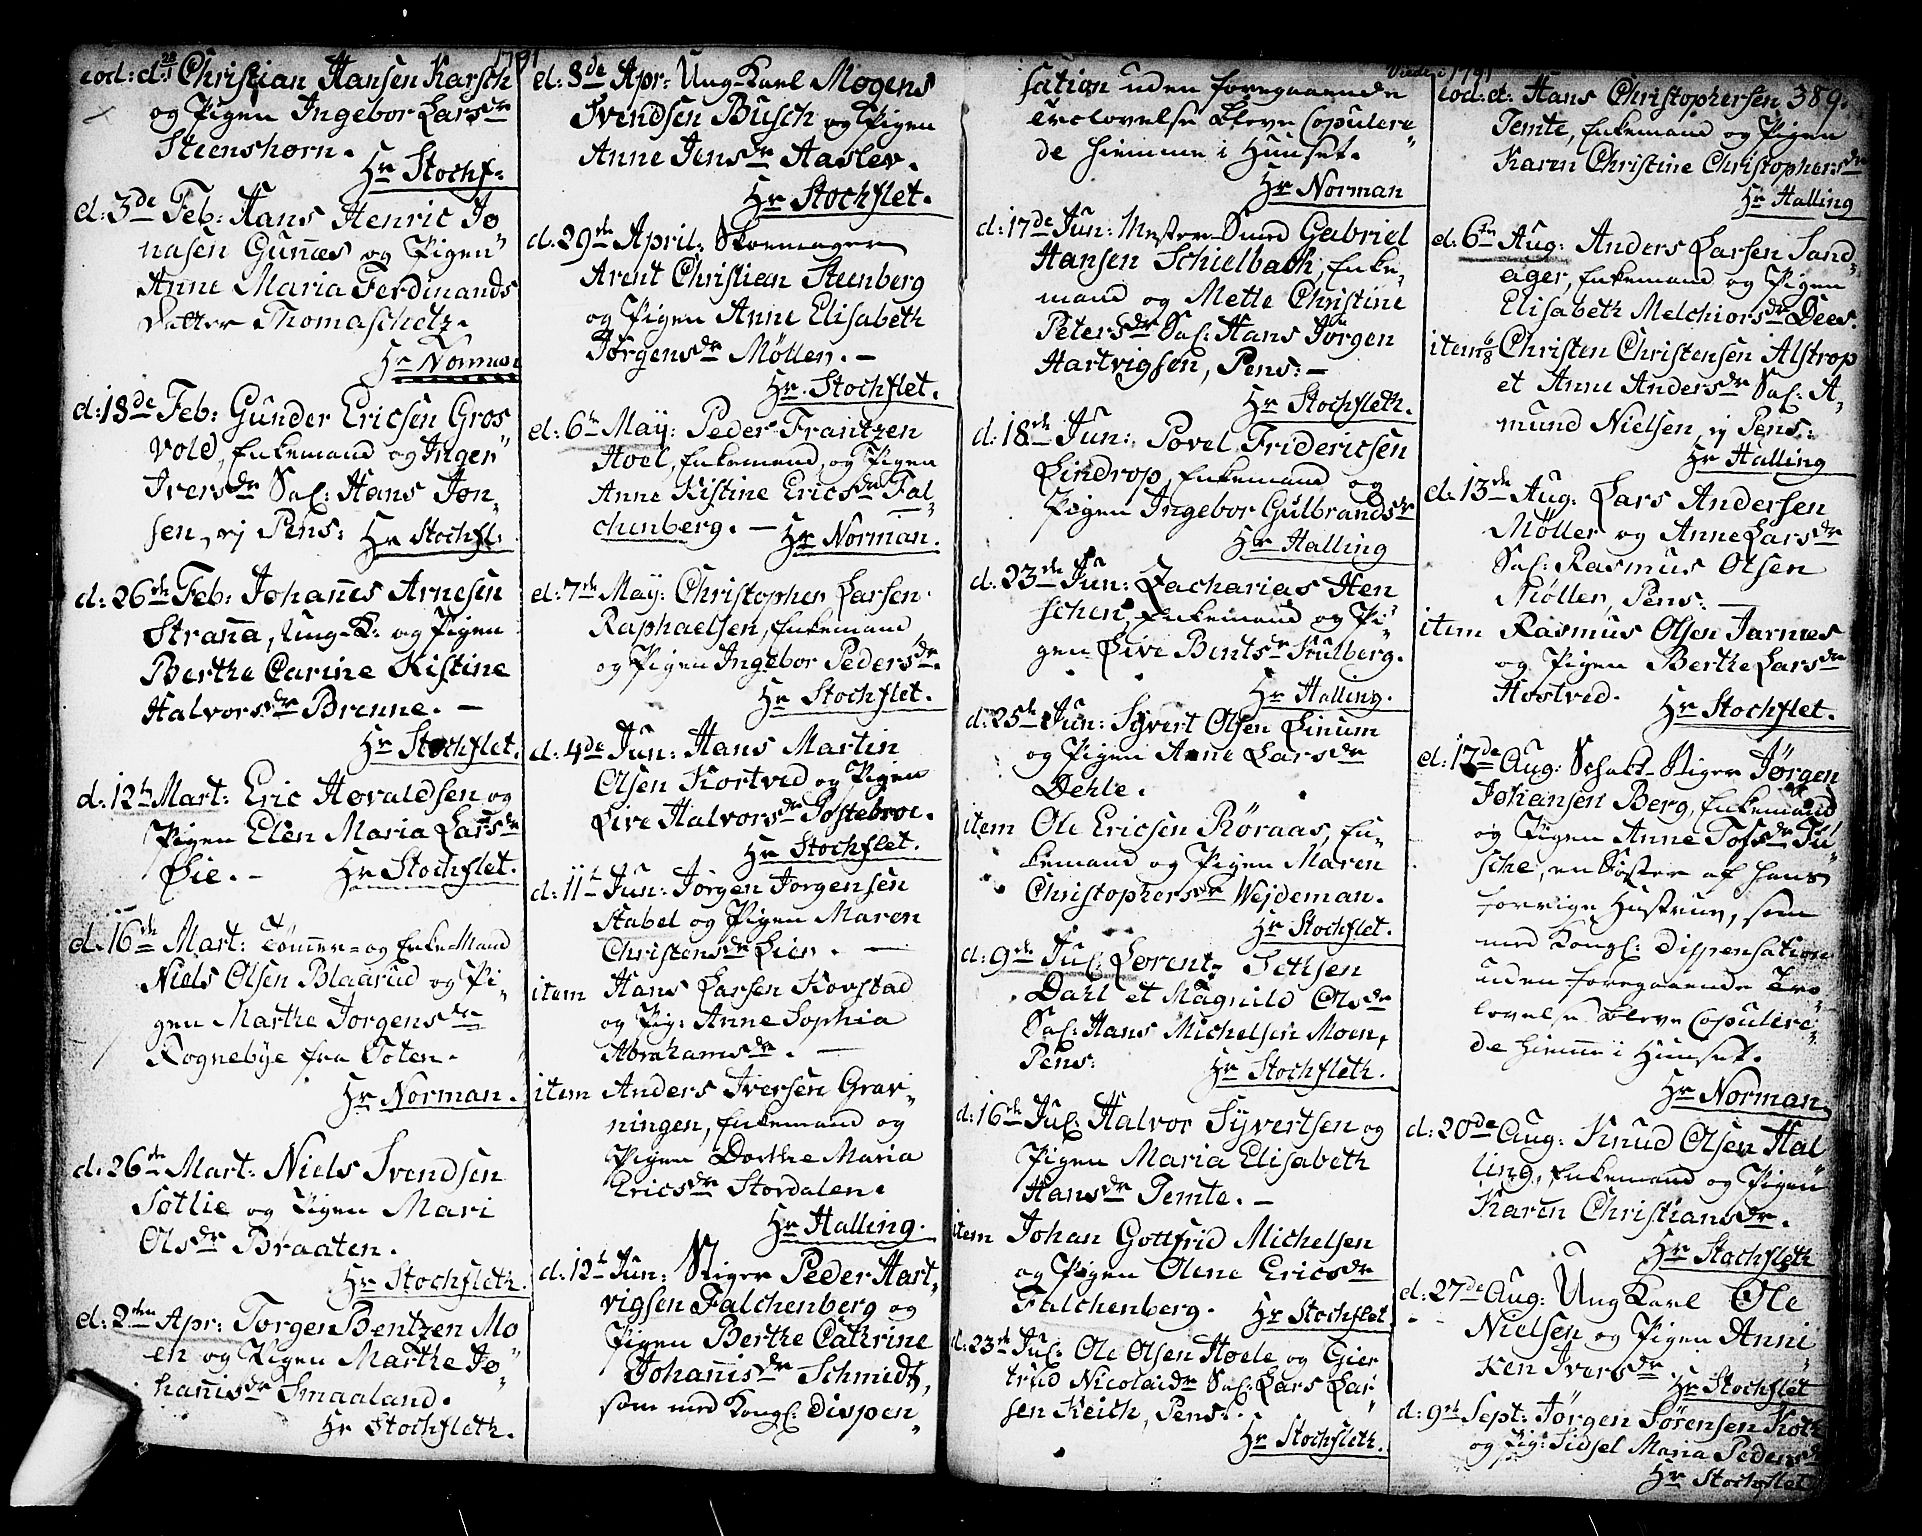 1791
eod: d: 28/1 Christian Hansen Karsch
og Pigen Ingebor Larsdr
Steenshorn.
Hr Stochf:
d: 3de Feb: Hans Henric Jo
nasen Guñæs og Pigen
Anne Maria Ferdinands
Datter Thomaschetz.
Hr Norman
d: 18de Feb: Gunder Ericsen Gros
vold, Enkemand og Inger
Iversdr Sal: Hans Jon,
sen, ej Pens: Hr Stochfl:
d: 26de Feb: Johañes Arnesen
Straña, Ung-K: og Pigen
Berthe Carine Kistine
Halvorsdr Brenne. —
Hr Stochflet.
d: 12te Mart: Eric Hovaldsen og
Pigen Elen Maria Larsdr
Øie. — Hr Stochflet.
d. 16de Mart: Tømmer- og Enke-Mand
Niels Olsen Blaarud og Pi,
gen Marthe Jorgensdr
Rognebye fra Toten.
Hr Norman.
d: 26de Mart: Niels Svendsen
Sollie og Pigen Mari
Olsdr Braaten.
Hr Stochfleth.
d: 2den Apr: Torger Bentzen Mo
en og Pigen Marthe Jo
hañisdr Smaaland.
Hr Stochfleth.
d: 8de Apr: Ung-Karl Mogens
Svendsen Busch og Pigen
Anne Jensdr Aaslev.
Hr Stochflet.
d: 29de April: Skoemager
Arent Christian Steenberg
og Pigen Anne Elisabeth
Jørgensdr Møllen. —
Hr. Stochflet.
d: 6te May: Peder Frantzen
Hoel, Enkemand, og Pigen
Anne Kistine Ericsdr Fal,
chenberg. — Hr Norman.
d: 7de May: Christopher Larsen
Raphaelsen, Enkemand
og Pigen Ingebor Pedersdr.
Hr Stochflet.
d: 4de Jun: Hans Martin
Olsen Kortved og Pigen
Live Halvorsdr Postebroe.
Hr Stochflet.
d: 11t Jun: Jorgen Jorgensen
Stabel og Pigen Maren
Christensdr Lien. —
item Hans Larsen Kovstad
og Pig: Anne Sophia
Abrahamsdr. —
item Anders Iversen Grav,
ningen, Enkemand og
Pigen Dorthe Maria
Ericsdr Stordalen.
Hr Halling.
d: 12t Jun: Stiger Peder Hart,
vigsen Falchenberg og
Pigen Berthe Cathrine
Johañisdr Schmidt,
som med Kongl: Dispen,
sation uden foregaaende
Troelovelse bleve Copulere
de hiemme i Huuset.
Hr Norman
d: 17de Jun: Mester Smed Gabriel
Hansen Schielbach, Enke,
mand og Mette Christine
Petersdr Sal: Hans Jørgen
Hartvigsen, Pens: —
Hr Stochfleth.
d: 18de Jun: Povel Fridericsen
Lindrop, Enkemand og
Pigen Ingebor Gulbrandsdr
Hr Halling
d: 23de Jun: Zacharias Hen
schen, Enkemand og Pi
gen Live Bentsdr Skulberg.
Hr Halling.
d: 25de Jun: Syvert Olsen Linum
og Pigen Anne Larsdr
Dehle.
item Ole Ericsen Røraas, En,
kemand og Pigen Maren
Christophersdr Wejdeman.
Hr Stochflet.
d: 9de Jul: Lorentz Sethsen
Dahl et Magnild Olsdr
Sal: Hans Michelsen Moen,
Pens:
Hr Stochfleth.
d: 16de Jul: Halvor Syvertsen og
Pigen Maria Elisabeth
Hansdr Temte. —
item Johan Gottfrid Michelsen
og Pigen Olene Ericsdr
Falchenberg. Hr Stochflet
d. 23de Jul: Ole Olsen Hoele og Gier
trud Nicolaidr Sal: Lars Lar,
sen Keith, Pens:
Hr Stochfleth.
Viede i 1791
389.
eod: d: Hans Christophersen
Temte, Enkemand og Pigen
Karen Christine Christophersdr
Hr Halling
d: 6te Aug: Anders Larsen Sand,
ager, Enkemand og Pigen
Elisabeth Melchiorsdr Dees.
item 6/8 Christen Christensen Alstrop
et Anne Andersdr Sal: A,
mund Nielsen, ej Pens:
Hr Halling
d: 13de Aug: Lars Andersen
Møller og Anne Larsdr
Sal: Rasmus Olsen
Møller, Pens: —
item Rasmus Olsen Jarnæs
og Pigen Berthe Larsdr
Hostved. Hr Stochflet.
d: 17de Aug: Schakt-Stiger Jørgen
Johansen Berg, Enkemand
og Pigen Anne Tofsdr Tu
sche, en Søster af hans
forrige Hustrue, som
med Kongl: Dispensation
uden foregaaende Tro
lovelse bleve Copulere
de hiemme i Huuset.
Hr Norman
d: 20de Aug: Knud Olsen Hal
ling, Enkemand og Pigen
Karen Christiansdr.
Hr Stochfleth
d: 27de Aug: Ung Karl Ole
Nielsen og Pigen Anni
ken Iversdr
Hr Stochflet
d: 9de Sept: Jørgen Sørensen Koth
og Pig: Sidsel Maria Pedersdr
Hr Stochflet